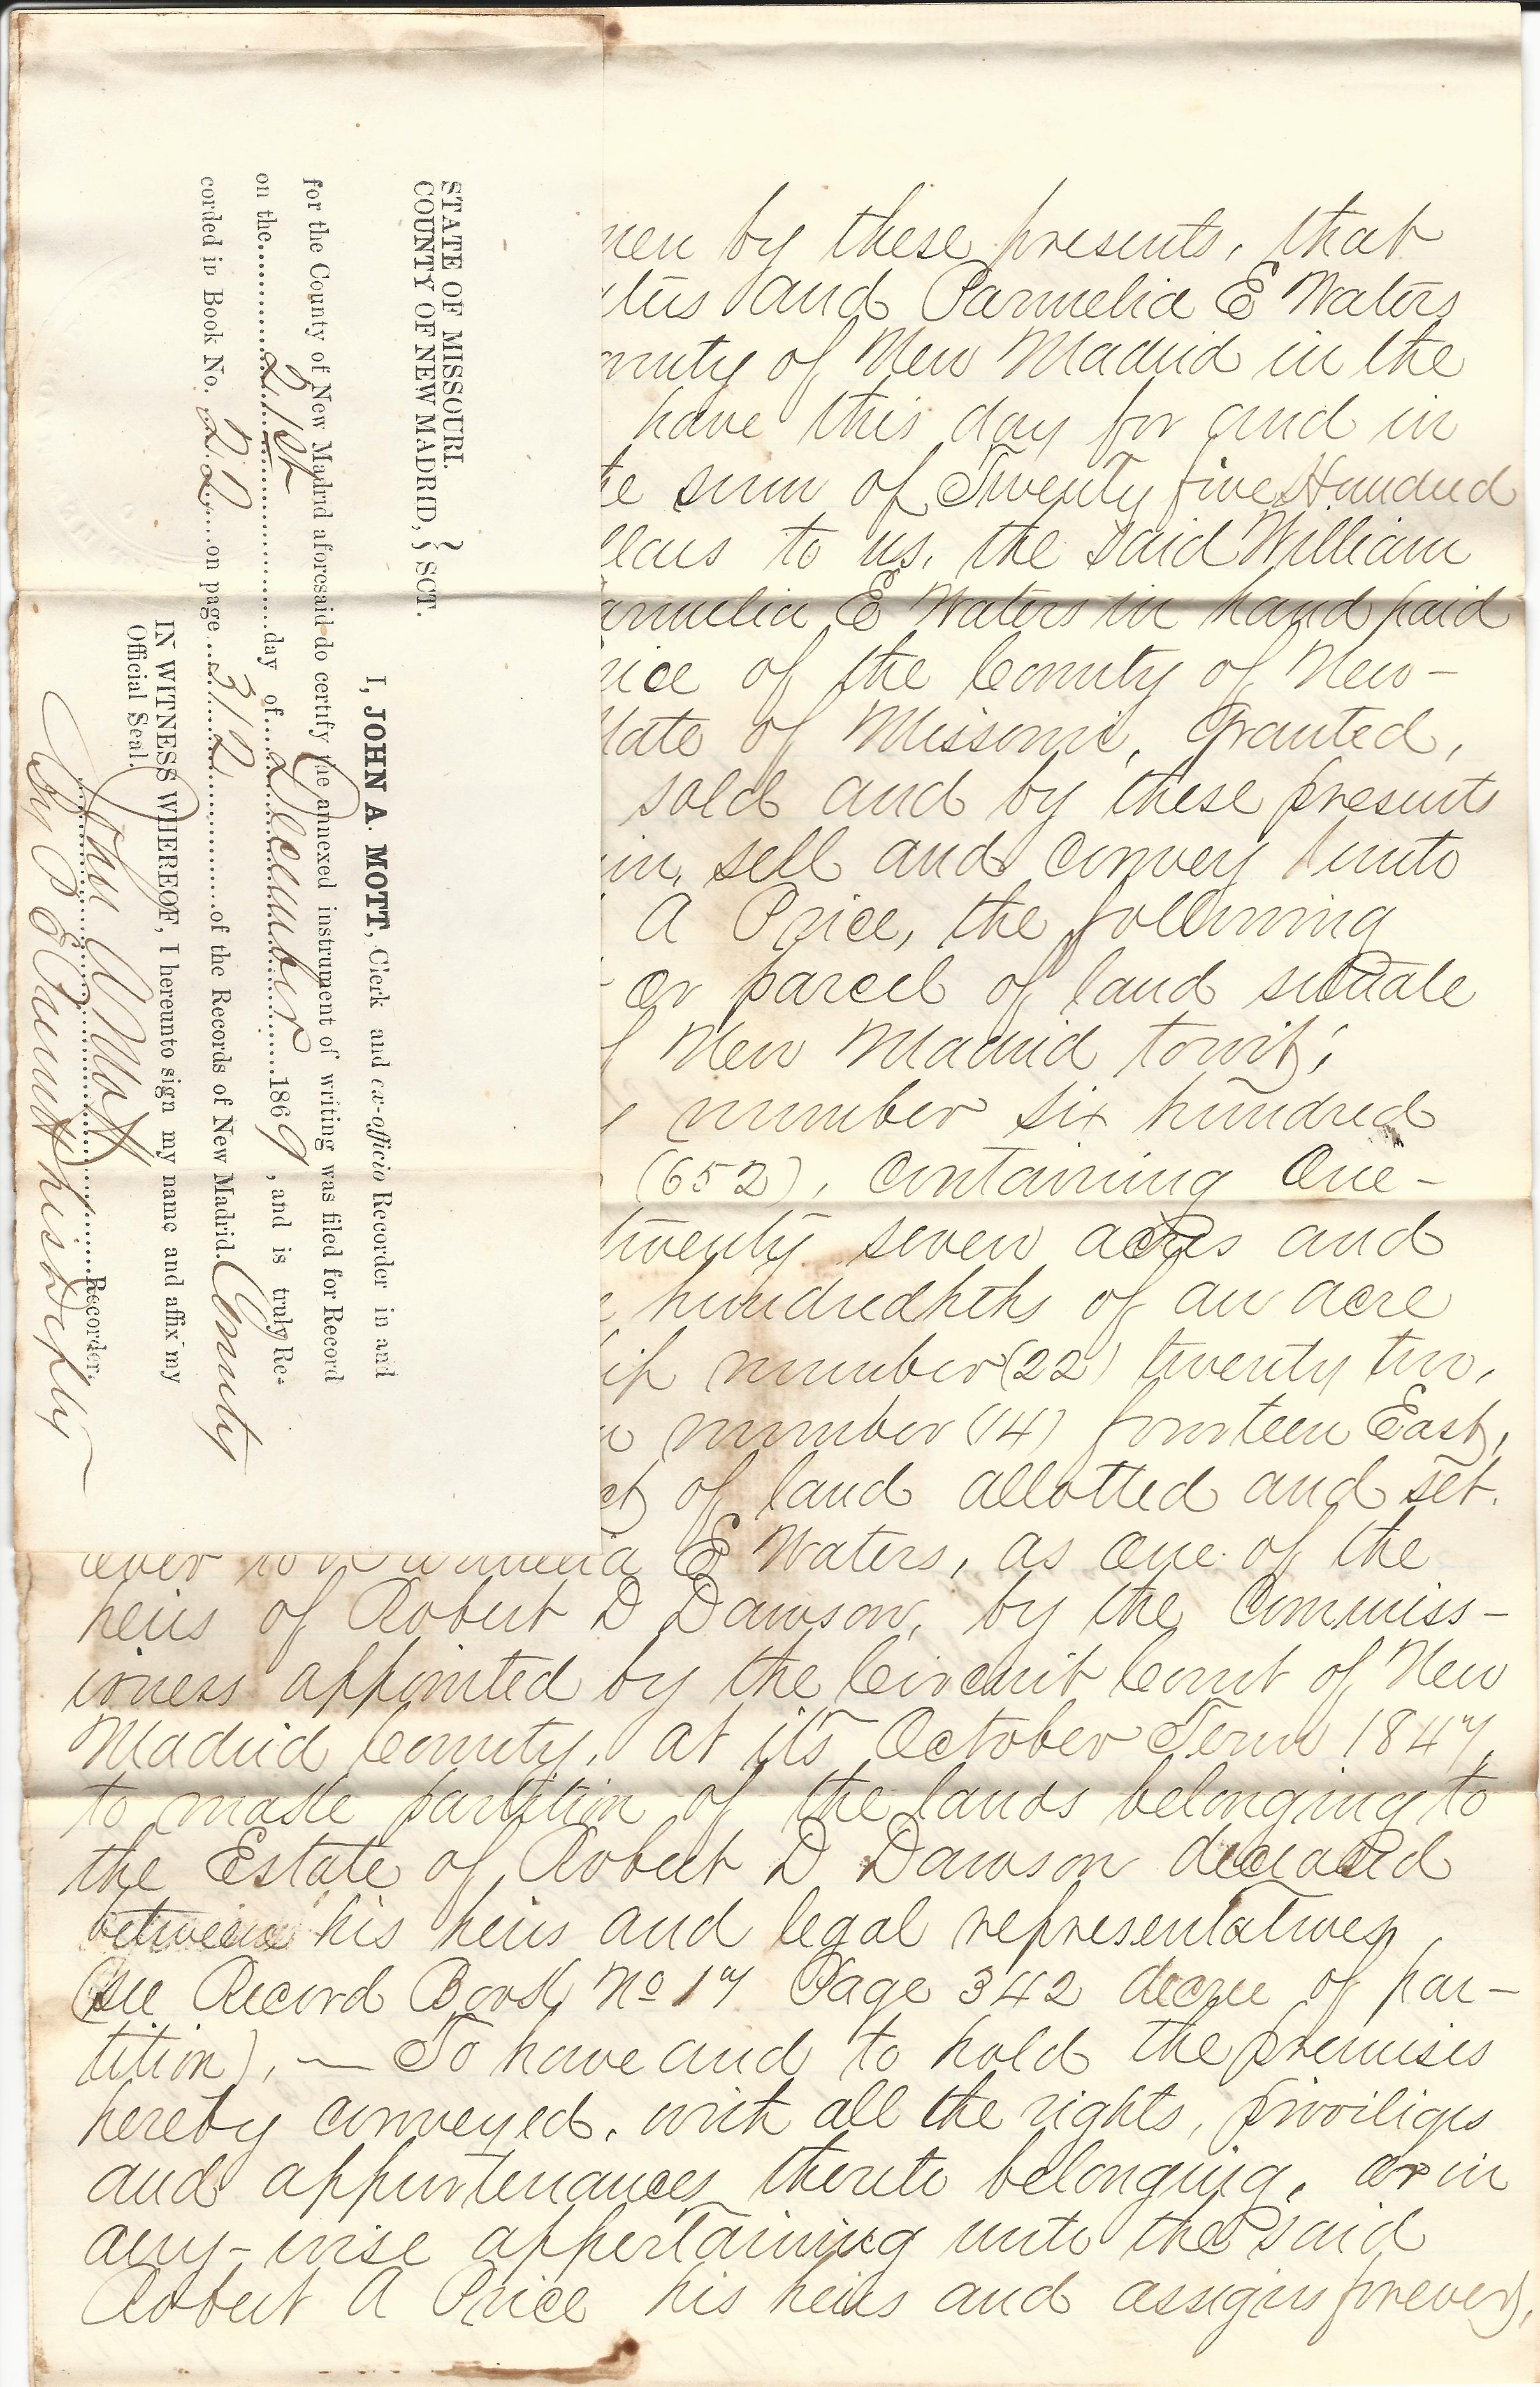 STATE OF MISSOURI.
COUNTY OF NEW MADRID, } SCT.
I, JOHN A. MOTT, Clerk and ex-officio Recorder in and
for the County of New Madrid aforesaid do certify the annexed instrument of writing was filed for Record
on the 21st day of December 1869, and is truly Re-
corded in Book No. 22 on page 312 of the Records of New Madrid County
IN WITNESS WHEREOF, I hereunto sign my name and affix my
Official Seal.
John A Mott Recorder.
his Deputy
men by these presents, that
and Parmelia E Waters
of New Madrid in the
have this day for and in
sum of Twenty five Hundred
to us, the said William
E Waters in hand paid
of the County of New-
of Missouri, Granted,
sold and by these presents
sell and convey unto
A Price, the following
or parcel of land situate
New Madrid towit;
number six hundred
(652), containing One-
twenty seven acres and
hundredths of an acre
number (22) twenty two,
number (14) fourteen East,
of land allotted and set.
E Waters, as one of the
heirs of Robert D Dawson, by the Commiss-
ioners appointed by the Circuit Court of New
Madrid County, at its October Term 1847,
to make partition of the lands belonging to
the Estate of Robert D Dawson deceased
between his heirs and legal representatives,
(see Record Book No 17 Page 342 decree of par-
tition), — To have and to hold the premises
hereby conveyed, with all the rights, priviliges
and appurtenances thereto belonging, or in
any-wise appertaining unto the said
Robert A Price his heirs and assigns forever,